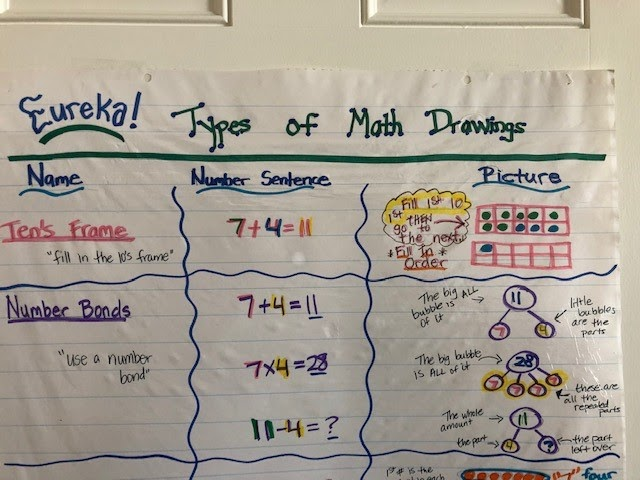 Eureka! Types of Math Drawings
Name
Number Sentence
Picture
Ten's Frame
"fill in the 10's frame"
7+4=11
Fill 1st 10
1st THEN
go to
the next
*Fill In*
Order
Number Bonds
"Use a number
bond"
7+4=11
The big ALL
bubble is
of it
11
7
4
little
bubbles
are the
parts
7x4=28
The big bubble
is ALL of it
28
7
7
7
7
these are
all the
repeated
parts
11-4=?
The whole
amount
11
the part
4
?
the part
left over
1st # is the
"7" four